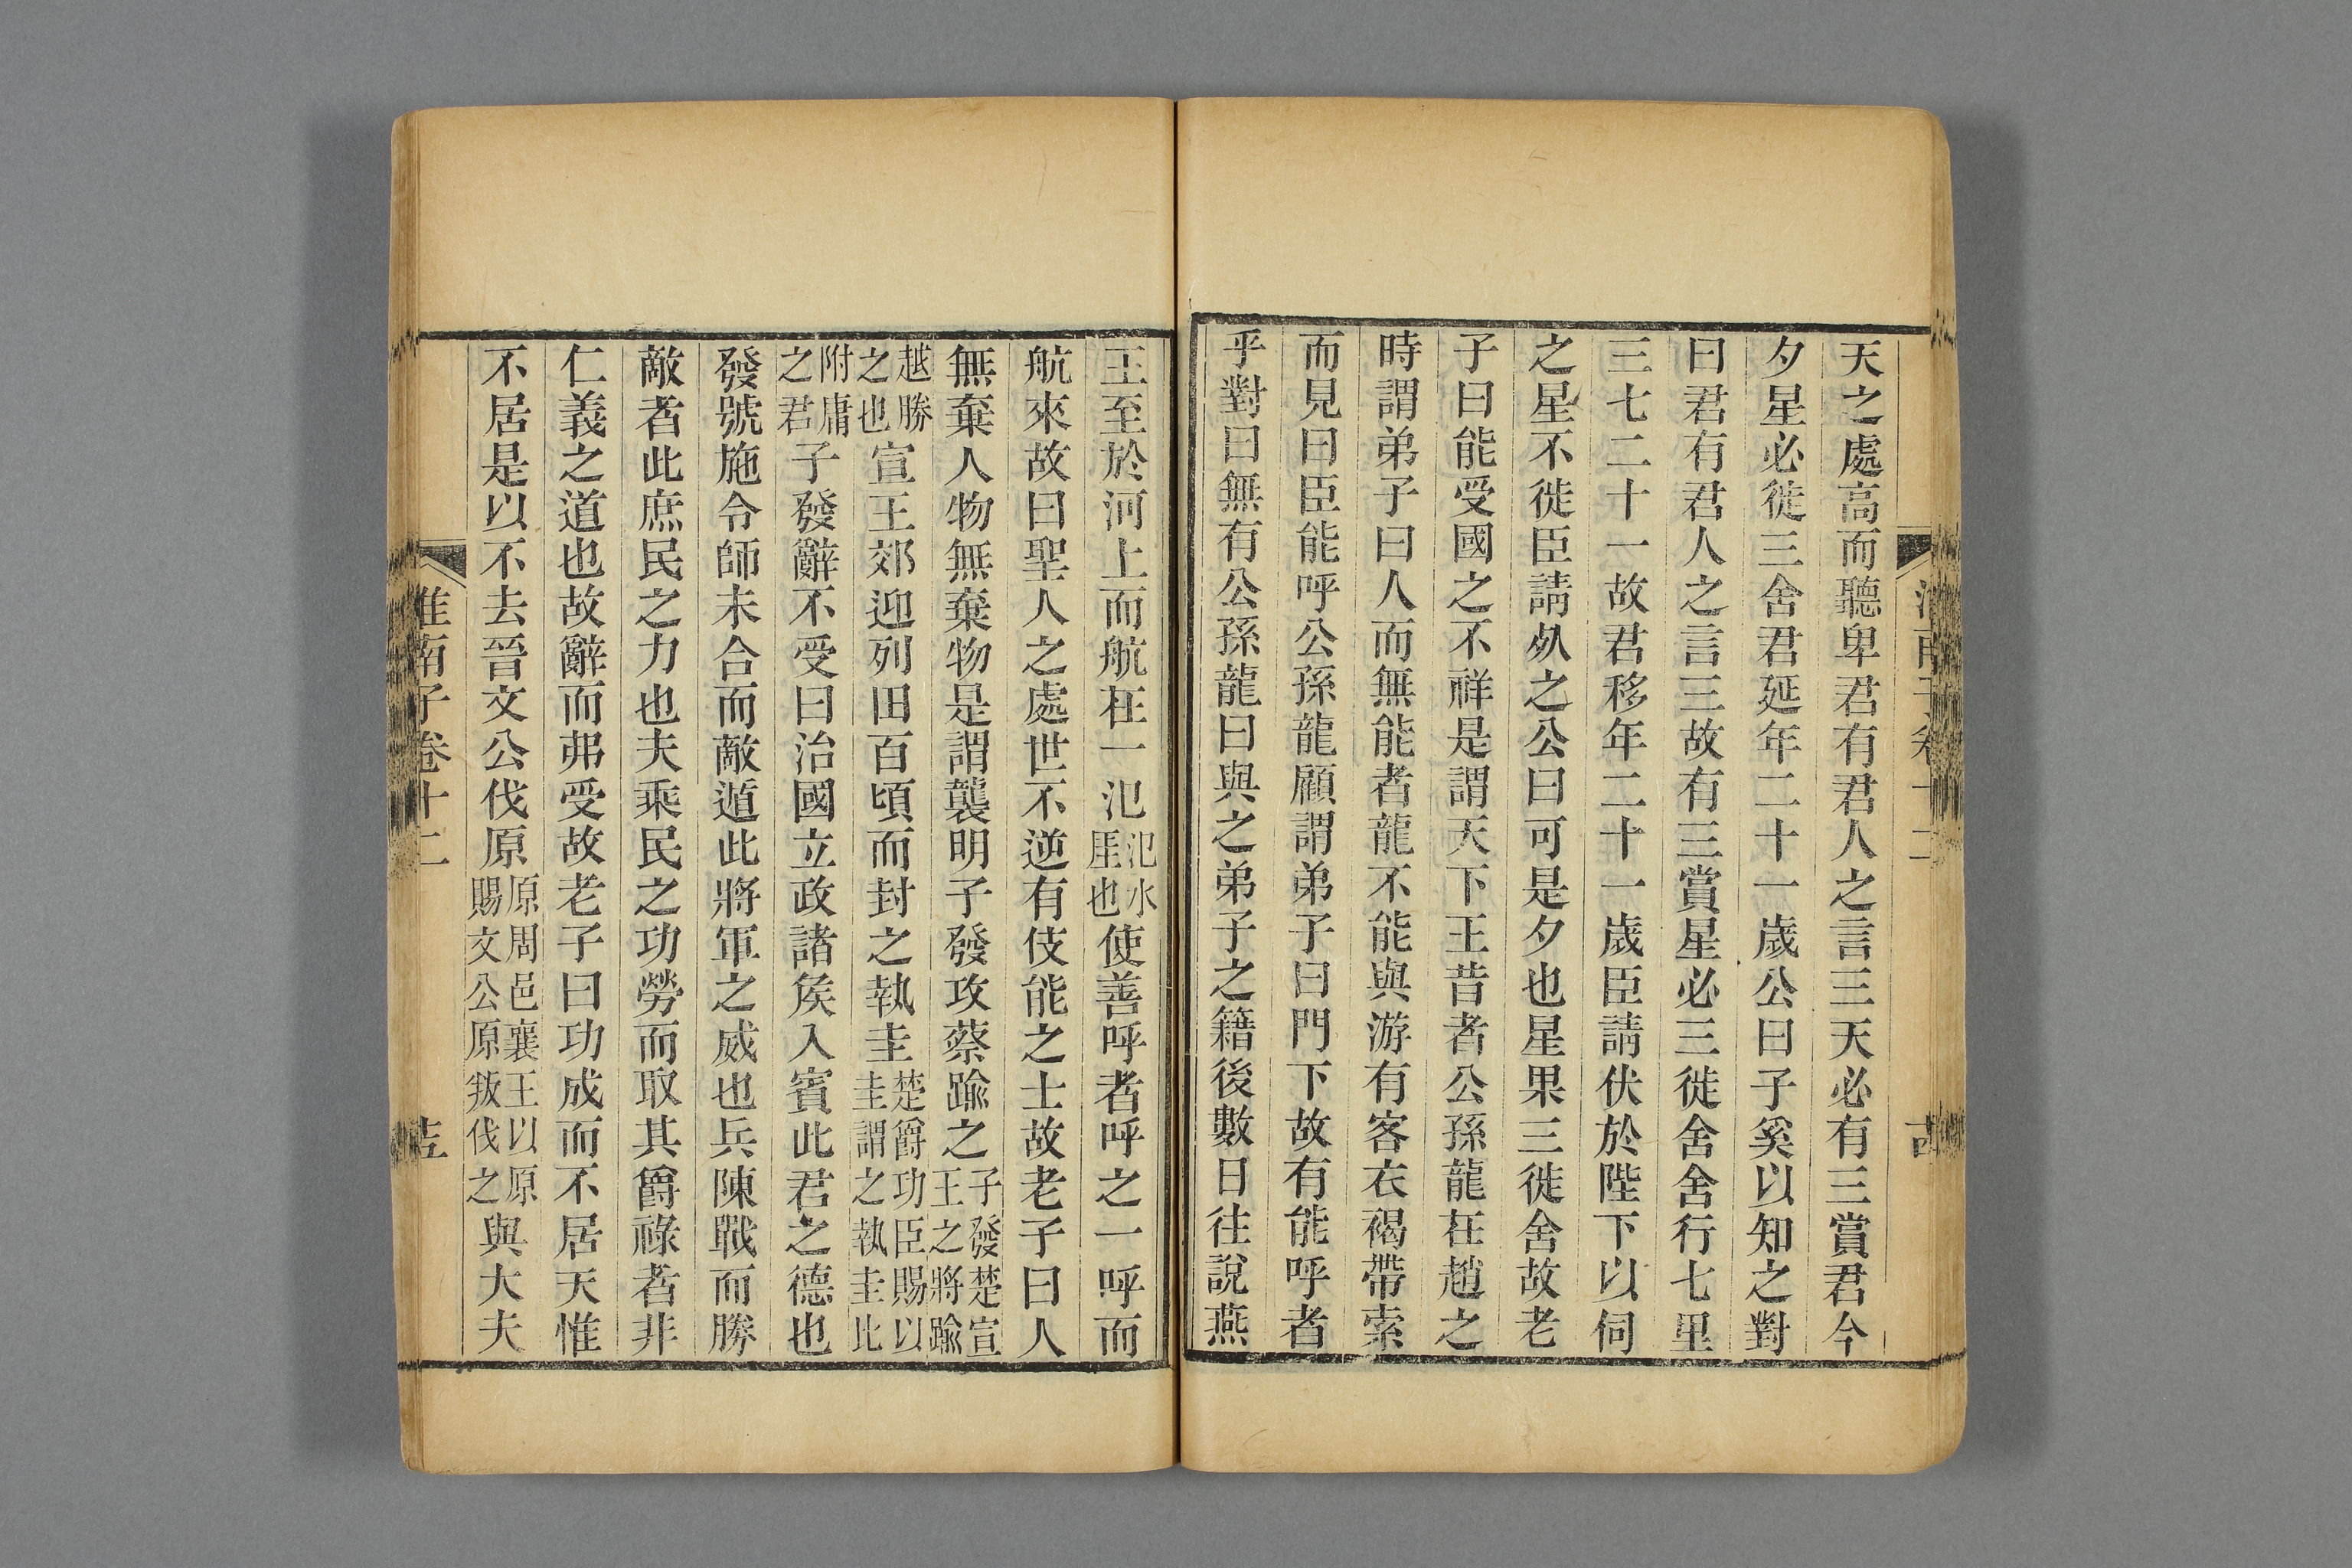 天之處高而聽卑君有君人之言三天必有三賞君今
夕星必徙三舍君延年二十一歲公曰子奚以知之對
曰君有君人之言三故有三賞星必三徙舍舍行七里
三七二十一故君移年二十一歲臣請伏於陛下以伺
之星不徙臣請死之公曰可是夕也星果三徙舍故老
子曰能受國之不祥是謂天下王昔者公孫龍在趙之
時謂弟子曰人而無能者龍不能與游有客衣褐帶索
而見曰臣能呼公孫龍顧謂弟子曰門下故有能呼者
乎對曰無有公孫龍曰與之弟子之籍後數日往說燕
王至於河上而航在一汜汜水厓也使善呼者呼之一呼而
航來故曰聖人之處世不逆有伎能之士故老子曰人
無棄人物無棄物是謂襲明子發攻蔡踰之子發楚宣王之將踰
越勝之也宣王郊迎列田百頃而封之執圭楚爵功臣賜以圭謂之執圭此
附庸之君子發辭不受曰治國立政諸矦入賓此君之德也
發號施令師未合而敵遁此將軍之威也兵陳戰而勝
敵者此庶民之力也夫乘民之功勞而取其爵祿者非
仁義之道也故辭而弗受故老子曰功成而不居天惟
不居是以不去晉文公伐原原周邑襄王以原賜文公原叛伐之與大夫
淮南子卷十二